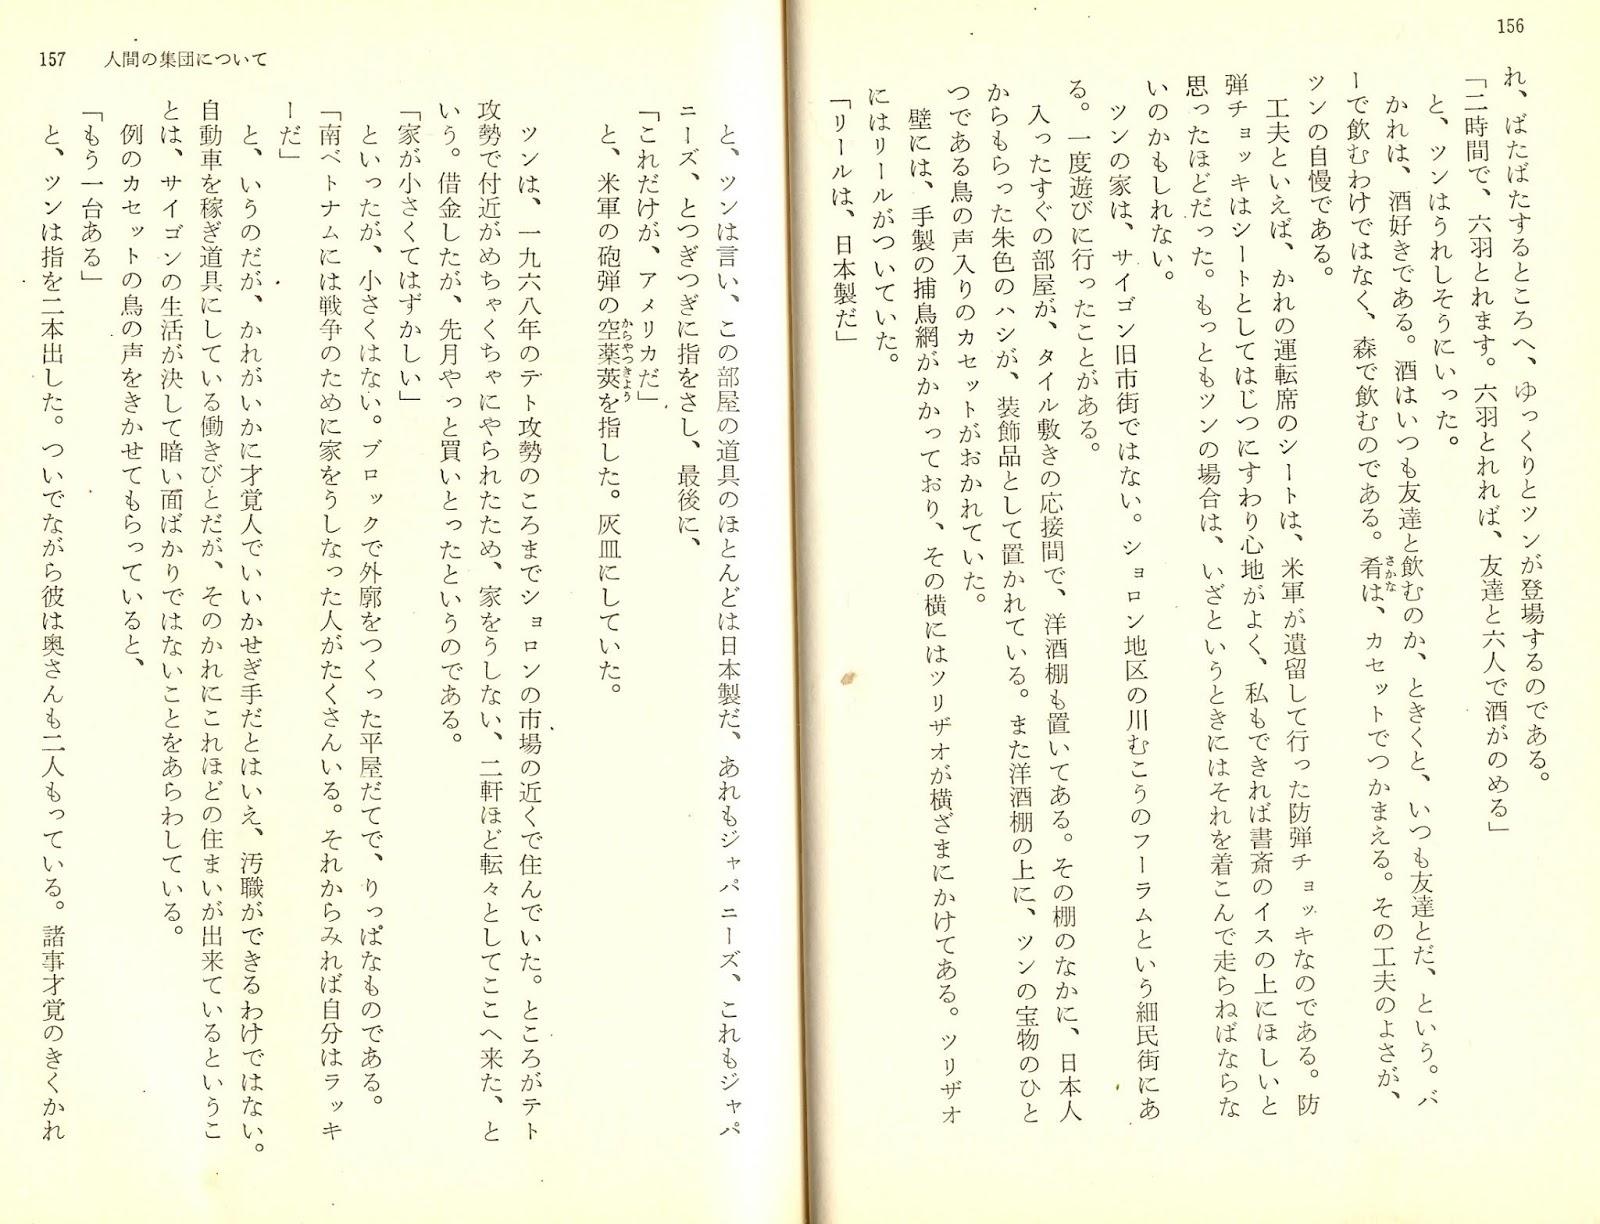 156
れ、ばたばたするところへ、ゆっくりとツンが登場するのである。
「二時間で、六羽とれます。六羽とれれば、友達と六人で酒がのめる」
と、ツンはうれしそうにいった。
かれは、酒好きである。酒はいつも友達と飲むのか、ときくと、いつも友達とだ、という。バ
ーで飲むわけではなく、森で飲むのである。肴は、カセットでつかまえる。その工夫のよさが、
さかな
ツンの自慢である。
工夫といえば、かれの運転席のシートは、米軍が遺留して行った防弾チョッキなのである。防
弾チョッキはシートとしてはじつにすわり心地がよく、私もできれば書斎のイスの上にほしいと
思ったほどだった。もっともツンの場合は、いざというときにはそれを着こんで走らねばならな
いのかもしれない。
ツンの家は、サイゴン旧市街ではない。ショロン地区の川むこうのフーラムという細民街にあ
る。一度遊びに行ったことがある。
入ったすぐの部屋が、タイル敷きの応接間で、洋酒棚も置いてある。その棚のなかに、日本人
からもらった朱色のハシが、装飾品として置かれている。また洋酒棚の上に、ツンの宝物のひと
つである鳥の声入りのカセットがおかれていた。
壁には、手製の捕鳥網がかかっており、その横にはツリザオが横ざまにかけてある。ツリザオ
にはリールがついていた。
「リールは、日本製だ」
157 人間の集団について
と、ツンは言い、この部屋の道具のほとんどは日本製だ、あれもジャパニーズ、これもジャパ
ニーズ、とつぎつぎに指をさし、最後に、
「これだけが、アメリカだ」
と、米軍の砲弾の空薬莢を指した。灰皿にしていた。
からやっきょう
ツンは、一九六八年のテト攻勢のころまでショロンの市場の近くで住んでいた。ところがテト
攻勢で付近がめちゃくちゃにやられたため、家をうしない、二軒ほど転々としてここへ来た、と
いう。借金したが、先月やっと買いとったというのである。
「家が小さくてはずかしい」
といったが、小さくはない。ブロックで外廓をつくった平屋だてで、りっぱなものである。
「南ベトナムには戦争のために家をうしなった人がたくさんいる。それからみれば自分はラッキ
ーだ」
と、いうのだが、かれがいかに才覚人でいいかせぎ手だとはいえ、汚職ができるわけではない。
自動車を稼ぎ道具にしている働きびとだが、そのかれにこれほどの住まいが出来ているというこ
とは、サイゴンの生活が決して暗い面ばかりではないことをあらわしている。
例のカセットの鳥の声をきかせてもらっていると、
「もう一台ある」
と、ツンは指を二本出した。ついでながら彼は奥さんも二人もっている。諸事才覚のきくかれ